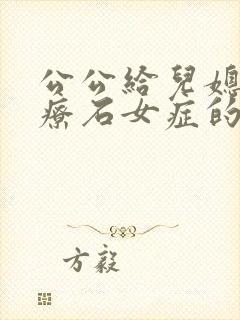 公公給兒媳
療石女症的
方毅